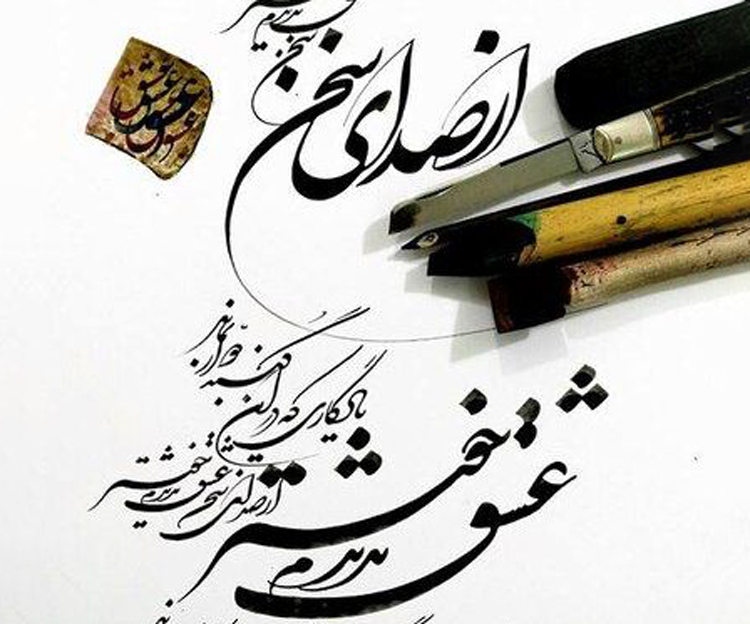 ندیدم
سخن
از صدای سخن
عشق عشق عشق
یادگاری که در این گنبد دوار بماند
عشق ندیدم خوشتر
از صدای سخن عشق ندیدم خوشتر